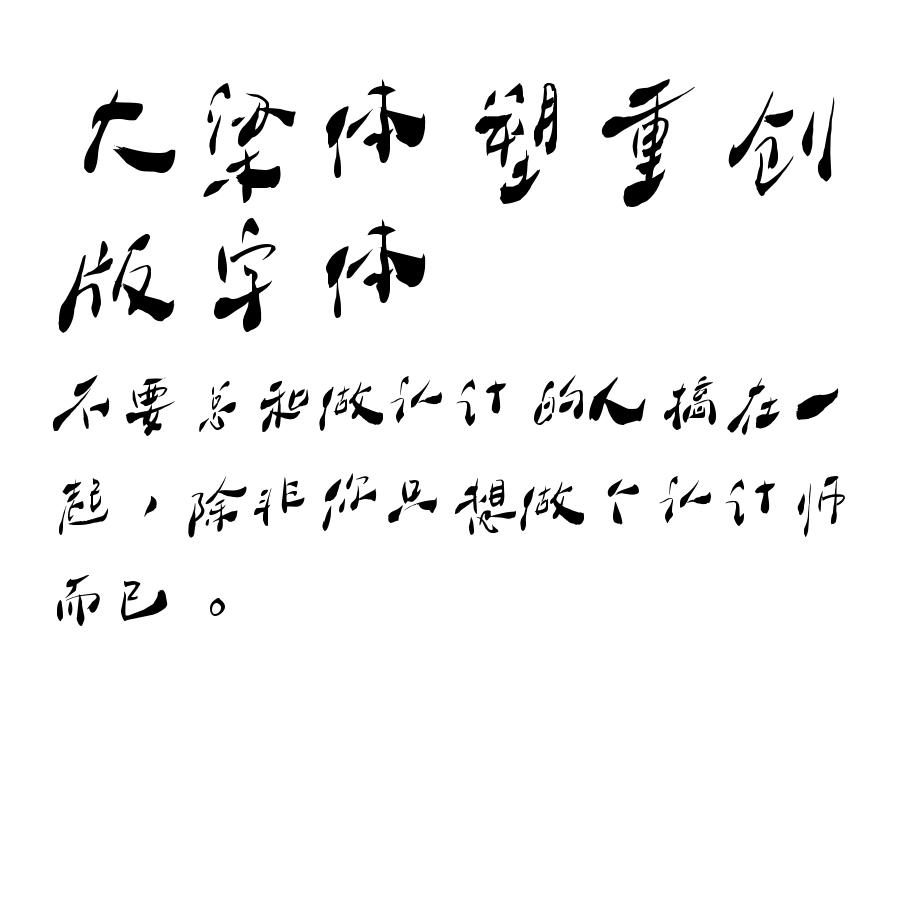 大梁体塑重创
版字体
不要总和做认计的人搞在一
起，除非你只想做个认计师
而已。